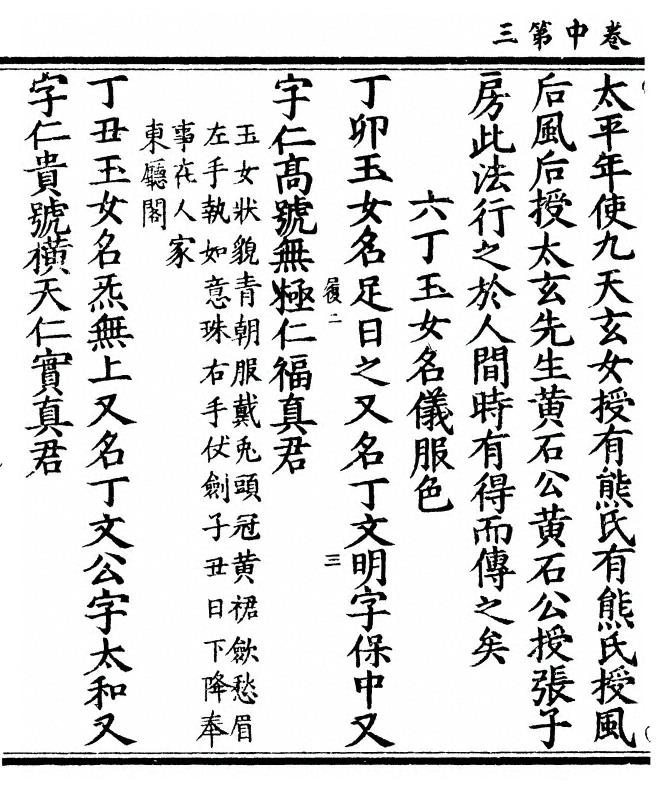 卷中第三
太平年使九天玄女授有熊氏有熊氏授風
后風后授太玄先生黄石公黄石公授張子
房此法行之於人間時有得而傳之矣
六丁玉女名儀服色
丁卯玉女名足日之又名丁文明字保中又
字仁髙號無極仁福真君
履二
三
玉女狀貌青朝服戴兎頭冠黄裙歛愁眉
左手執如意珠右手仗劍子丑日下降奉
事在人家
東廳閣
丁丑玉女名炁無上又名丁文公字太和又
字仁貴號橫天仁實真君